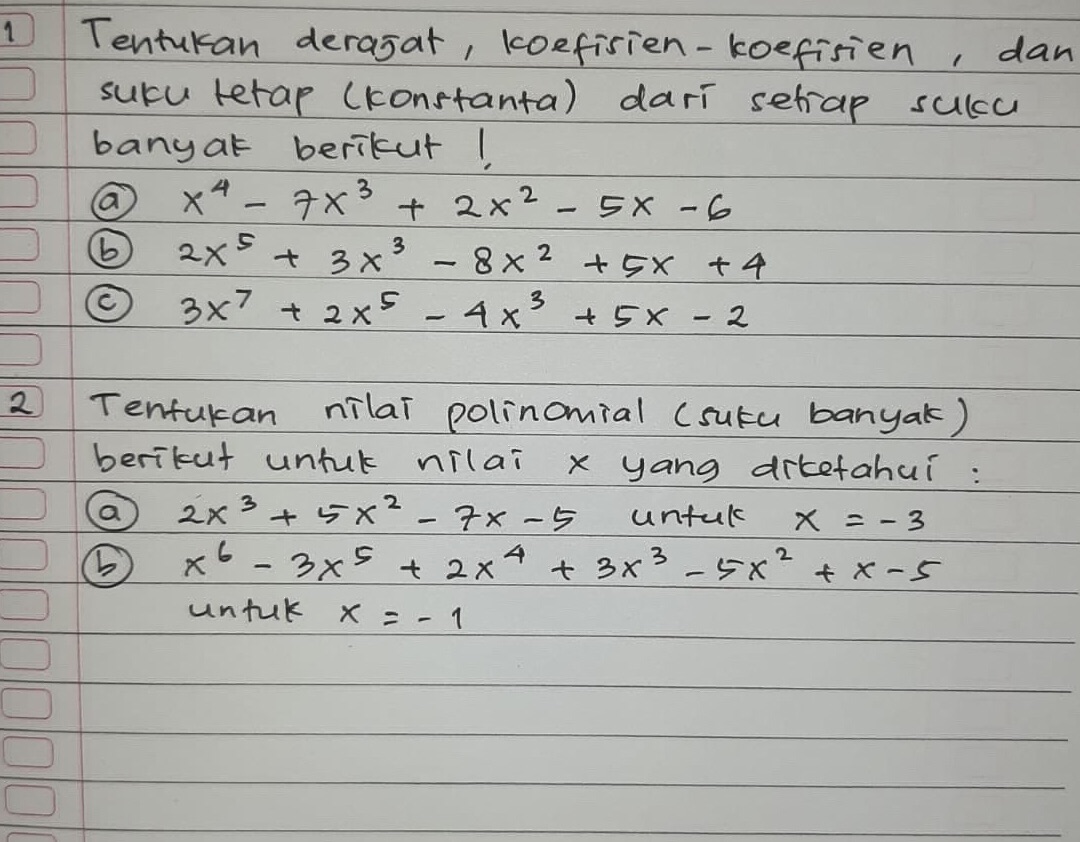 1 Tentukan derajat, koefisien-koefisien, dan
suku tetap (konstanta) dari setiap suku
banyak berikut!
ⓐ x⁴ - 7x³ + 2x² - 5x - 6
ⓑ 2x⁵ + 3x³ - 8x² + 5x + 4
ⓒ 3x⁷ + 2x⁵ - 4x³ + 5x - 2
2 Tentukan nilai polinomial (suku banyak)
berikut untuk nilai x yang diketahui :
ⓐ 2x³ + 5x² - 7x - 5 untuk x = -3
ⓑ x⁶ - 3x⁵ + 2x⁴ + 3x³ - 5x² + x - 5
untuk x = -1